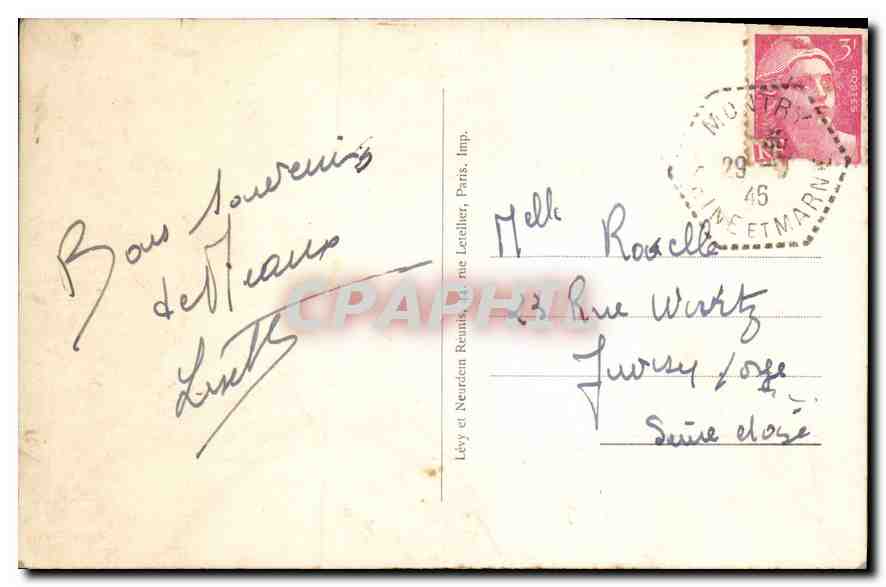 Bons souvenirs
de Meaux
Lisette
Lévy et Neurdein Réunis, 44, rue Letellier, Paris. Imp.
3F
POSTES
MONTRY
29
46
SEINE ET MARNE
Melle Roselle
23 Rue Wurtz
Juvisy s/orge
Seine et oise
CPAPHIL